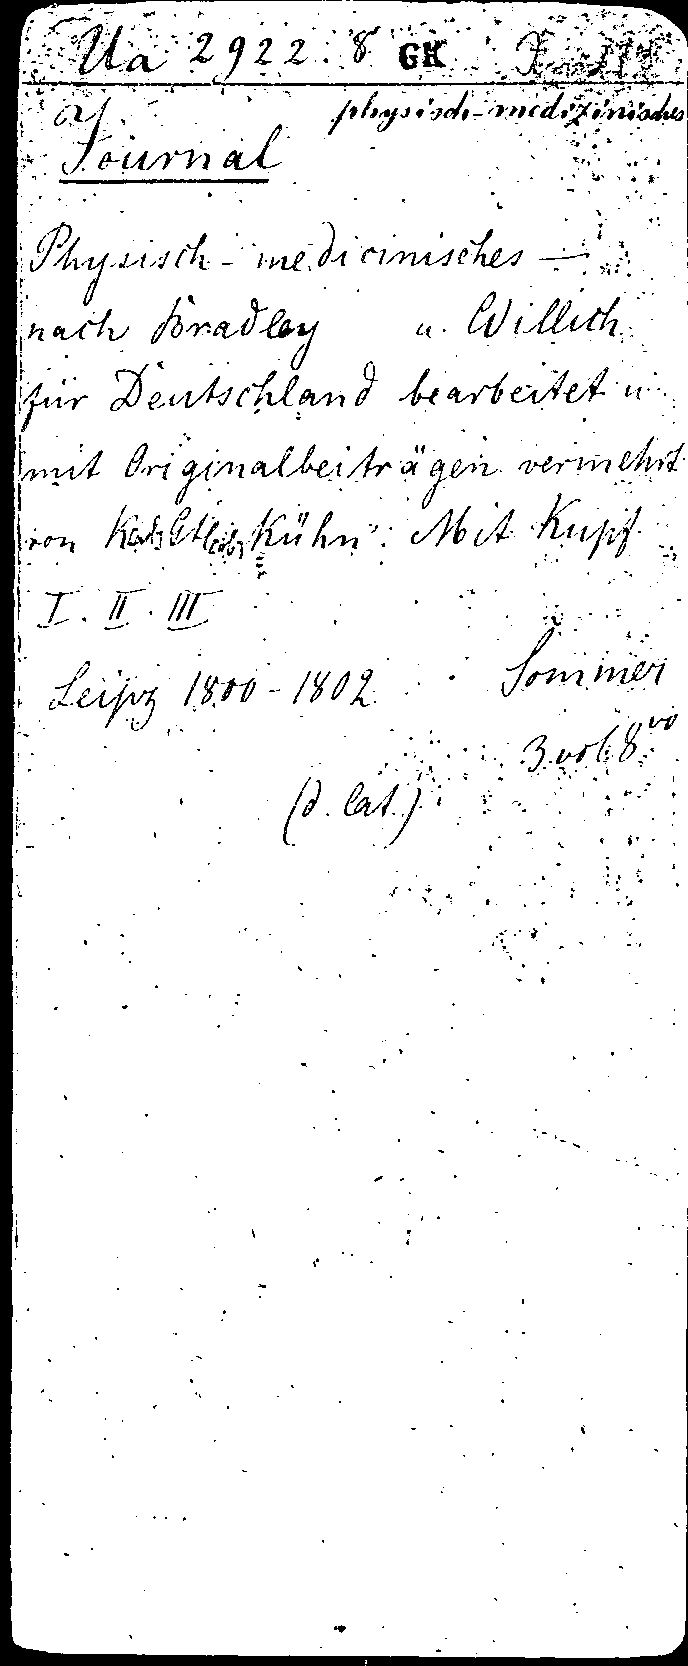 Ua 2922. 8 GK
physisch-medizinisches
Journal
Physisch-medicinisches —
nach Bradley u. Willich
für Deutschland bearbeitet u
mit Originalbeiträgen vermehrt
von Kühn. Mit Kupf
I. II. III
Leipz 1800-1802 Sommer
3 vol 8vo
(d. Cat.)